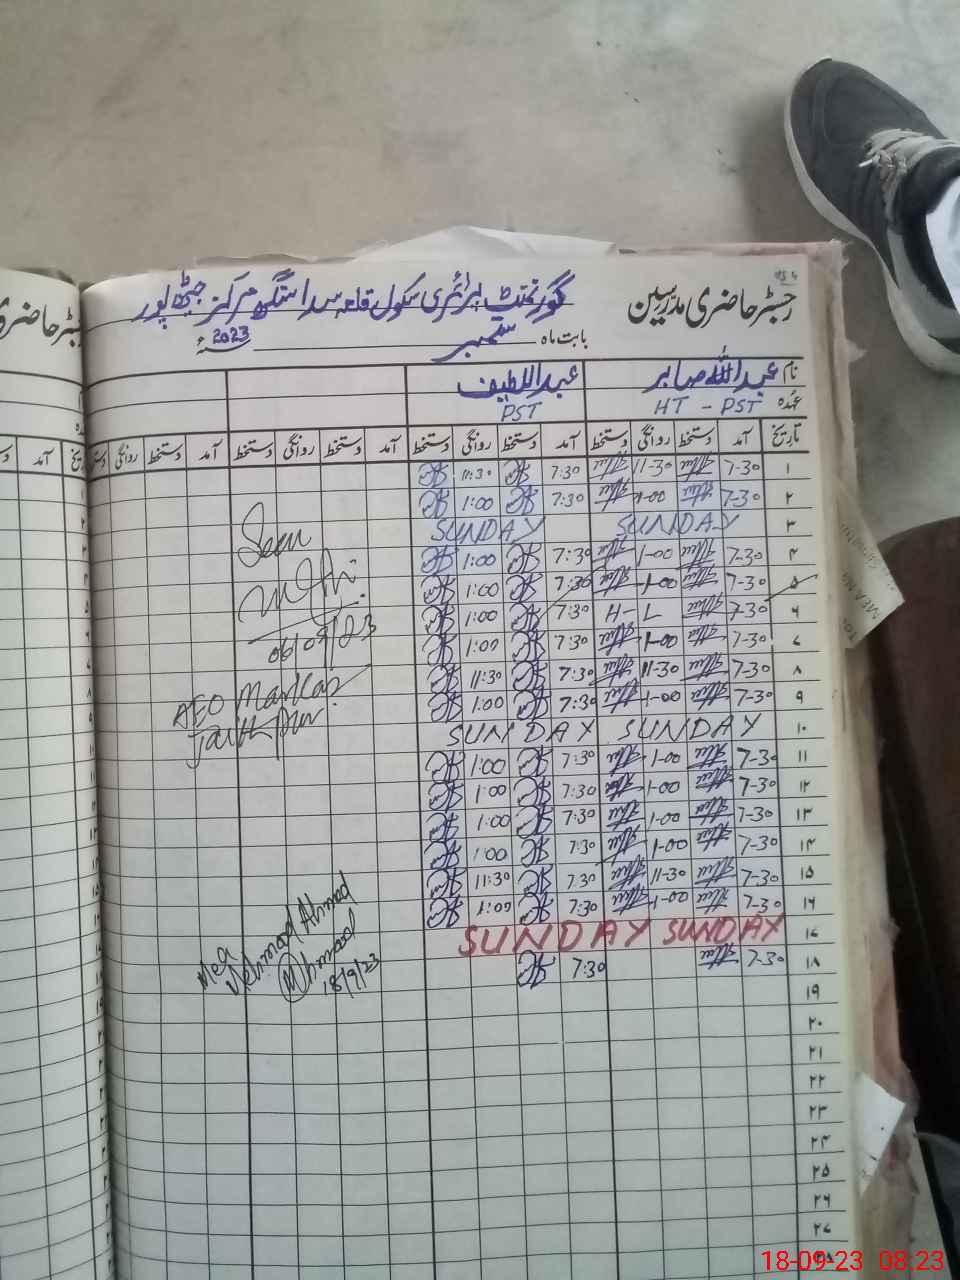 رجسٹر حاضری مدرسین
گورنمنٹ پرائمری سکول قلعہ سدا سنگھ مرکز جیٹھ پور
بابت ماہ ستمبر 2023ء
نام عبداللہ صابر عبداللطیف
عہدہ HT - PST PST
تاریخ آمد دستخط روانگی دستخط آمد دستخط روانگی دستخط آمد دستخط روانگی دستخط آمد دستخط روانگی دستخط
۱ 7-30 11-30 7:30 11:30
۲ 7-30 1-00 7:30 1:00
۳ SUNDAY SUNDAY
۴ 7-30 1-00 7:30 1:00
۵ 7-30 1-00 7:30 1:00
۶ 7-30 H-L 7:30 1:00
۷ 7-30 1-00 7:30 1:00
۸ 7-30 11-30 7:30 11:30
۹ 7-30 1-00 7:30 1:00
۱۰ SUNDAY SUNDAY
۱۱ 7-30 1-00 7:30 1:00
۱۲ 7-30 1-00 7:30 1:00
۱۳ 7-30 1-00 7:30 1:00
۱۴ 7-30 1-00 7:30 1:00
۱۵ 7-30 11-30 7:30 11:30
۱۶ 7-30 1-00 7:30 1:00
۱۷ SUNDAY SUNDAY
۱۸ 7-30 7:30
۱۹
۲۰
۲۱
۲۲
۲۳
۲۴
۲۵
۲۶
۲۷
۲۸
Seen
06/09/23
AEO Markaz
Jaith Pur
MEA
Mehmood Ahmad
18/9/23
رجسٹر حاضری
آمد
تاریخ
MEA No
18-09-23 08:23